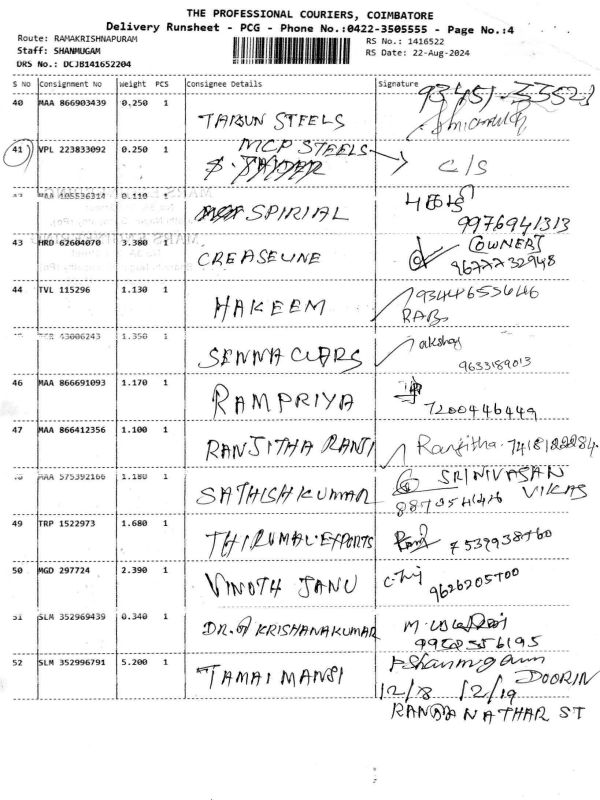 THE PROFESSIONAL COURIERS, COIMBATORE
Delivery Runsheet - PCG - Phone No.:0422-3505555 - Page No.:4
Route: RAMAKRISHNAPURAM RS No.: 1416522
Staff: SHANMUGAM RS Date: 22-Aug-2024
DRS No.: DCJB141652204
S No Consignment No Weight PCS Consignee Details Signature
40 MAA 866903439 0.250 1 TARUN STEELS 93451-33523
41 VPL 223833092 0.250 1 MCP STEELS C/S
42 MAA 105536314 0.110 1 SPIRIAL
9976941313
43 HRD 62604070 3.380 1 CREASELINE [OWNER]
9677732948
44 TVL 115296 1.130 1 HAKEEM 9344655646
RABS
43006243 1.350 SENNA CLARS akshay
9633189013
46 MAA 866691093 1.170 1 RAMPRIYA
7200446449
47 MAA 866412356 1.100 1 RANJITHA RANJI Ranjitha. 7418122284.
48 MAA 575392166 1.180 1 SATHISH KUMAR SRINIVASAN
VIKAS
49 TRP 1522973 1.680 1 THIRUMAL. EXPORTS 7539938560
50 MGD 297724 2.390 1 VINOTH JANU
9626205700
51 SLM 352969439 0.340 1 DR. KRISHANAKUMAR
9958556195
52 SLM 352996791 5.200 1 TAMAI MANSI P Shanmugam
DOORIN
12/18 12/19
RANGANATHAR ST